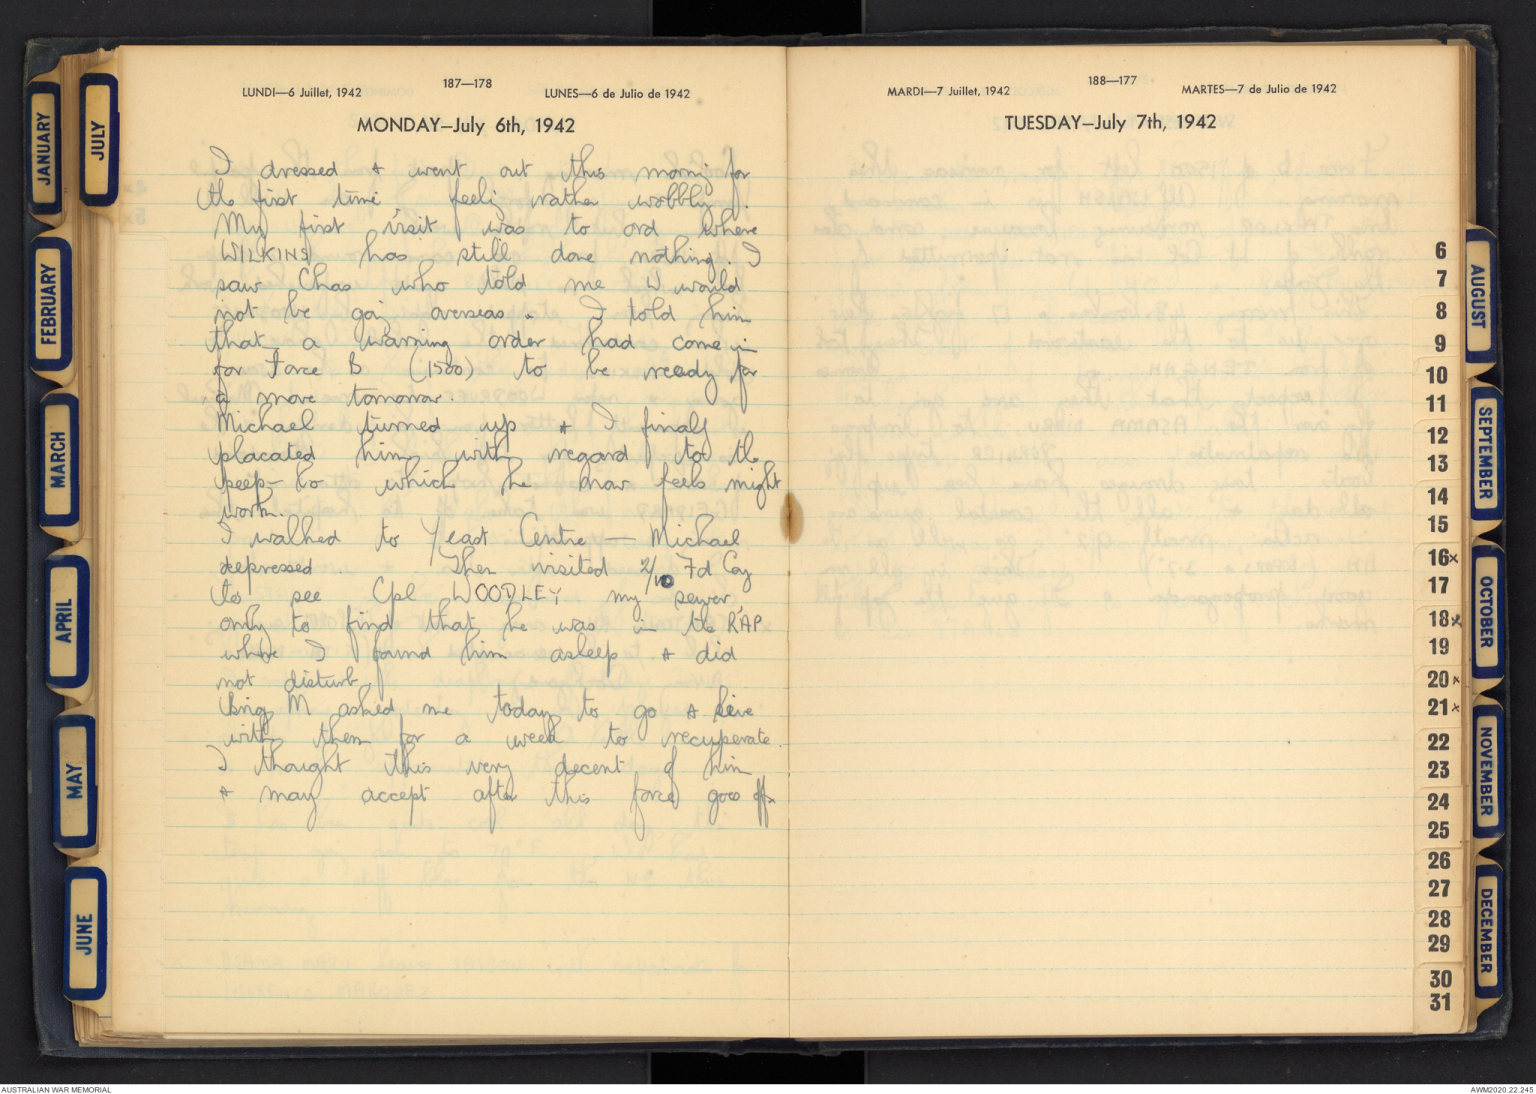 JANUARY
FEBRUARY
MARCH
APRIL
MAY
JUNE
JULY
187—178
LUNDI—6 Juillet, 1942
LUNES—6 de Julio de 1942
MONDAY—July 6th, 1942
I dressed & went out this morning for
the first time, feeling rather wobbly.
My first visit was to ord where
WILKINS has still done nothing. I
saw Chas who told me W would
not be going overseas. I told him
that a warning order had come in
for Force B (1500) to be ready for
a move tomorrow.
Michael turned up & I finally
placated him with regard to the
peep- to which he now feels might
work.
I walked to Yeast Centre — Michael
depressed. Then visited 2/10 Fd Coy
to see Cpl WOODLEY my sewer,
only to find that he was in the RAP
where I found him asleep & did
not disturb.
Brig M asked me today to go & live
with them for a week to recuperate
I thought this very decent of him
& may accept after this force goes off
188—177
MARDI—7 Juillet, 1942
MARTES—7 de Julio de 1942
TUESDAY—July 7th, 1942
6
7
8
9
10
11
12
13
14
15
16x
17
18x
19
20x
21x
22
23
24
25
26
27
28
29
30
31
AUGUST
SEPTEMBER
OCTOBER
NOVEMBER
DECEMBER
AUSTRALIAN WAR MEMORIAL
AWM2020.22.245